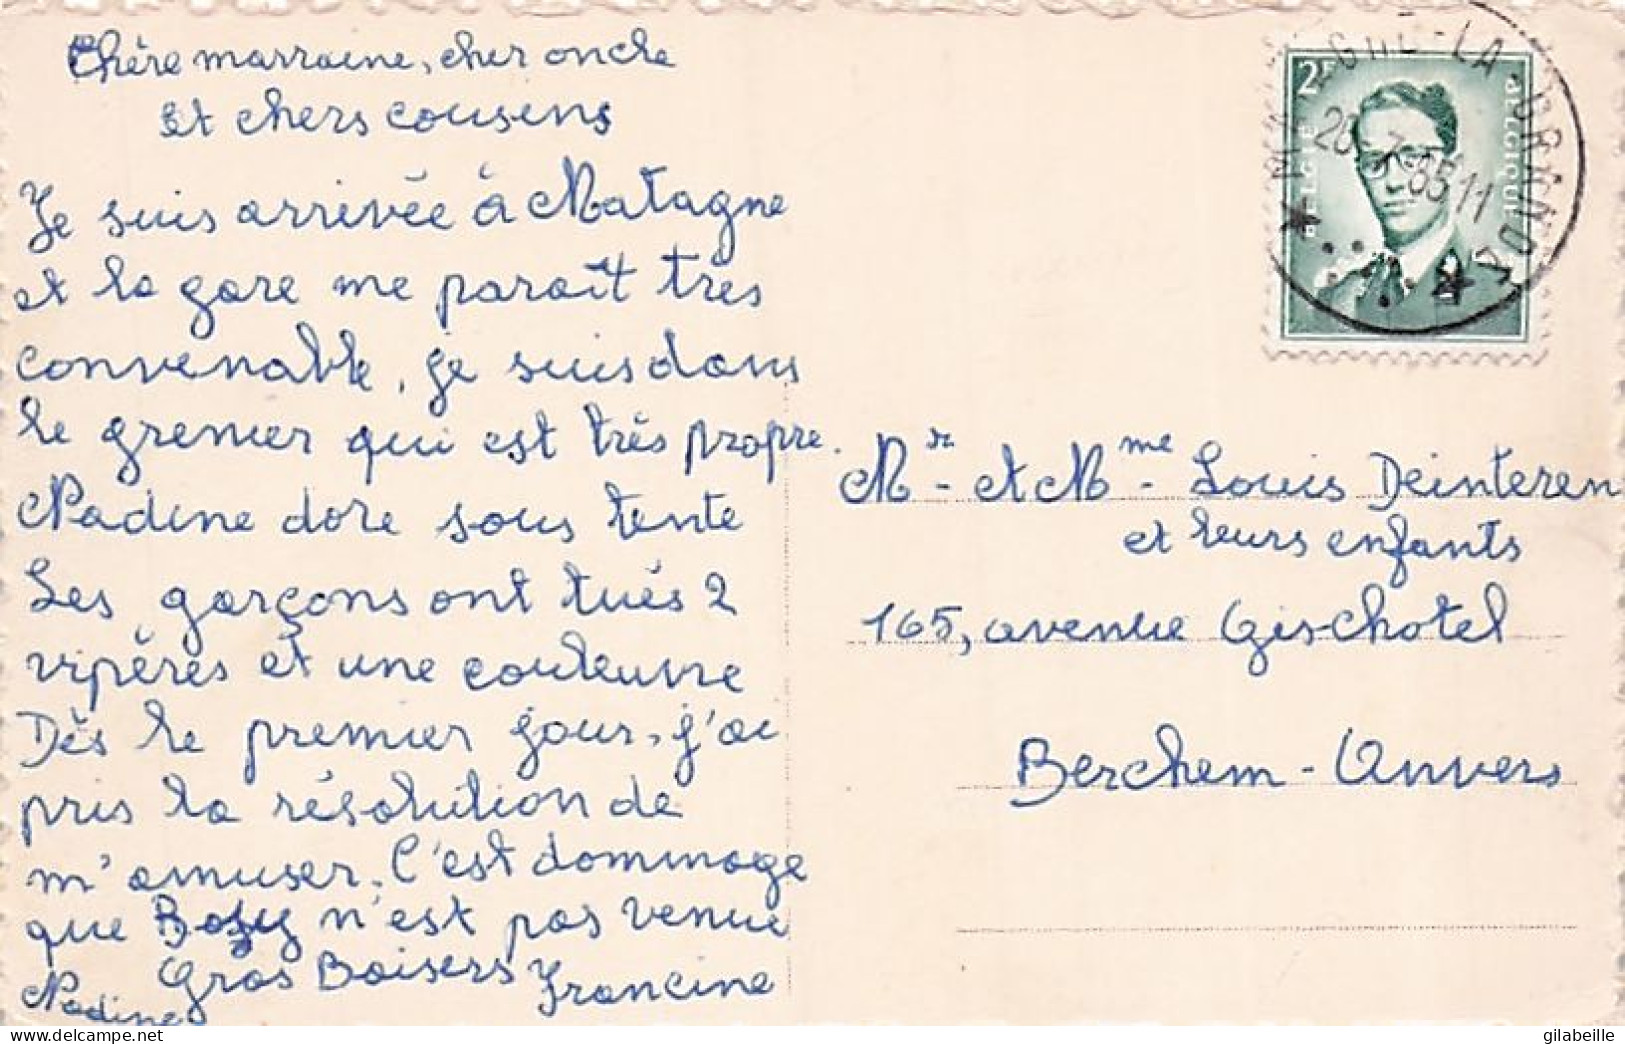 Chère marraine, cher oncle
et chers cousens
Je suis arrivée à Matagne
et la gare me paraît très
convenable, je suis dans
le grenier qui est très propre.
Nadine dore sous tente
Les garçons ont tués 2
vipéres et une couleuvre
Dès le premier jour, j'ai
pris la résolution de
m'amuser. C'est dommage
que n'est pas venue
Gros Baisers Francine
Nadine
2F
BELGIE
BELGIQUE
LA-GRANDE
65 11
Mr - et Mme - Louis Deinteren
et leurs enfants
165, avenue Gischotel
Berchem - Anvers
gilabeille